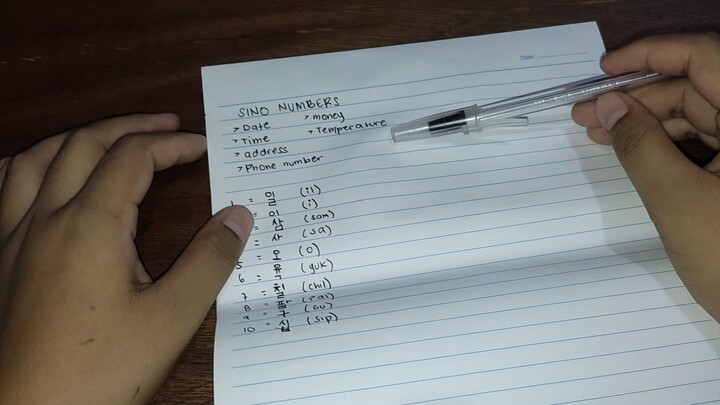 Date:
SINO NUMBERS
> Date > money
> Time > Temperature
> address
> Phone number
1 = 일 (il)
= 이 (i)
= 삼 (sam)
= 사 (sa)
5 = 오 (O)
6 = 육 (yuk)
7 = 칠 (chil)
8 = 팔 (pal)
9 = 구 (Gu)
10 = 십 (sip)